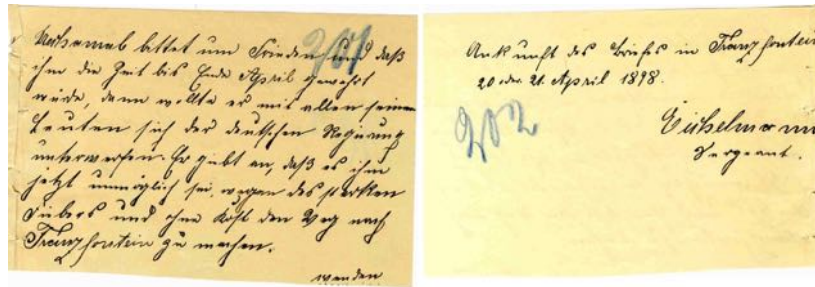 bittet um Frieden und daß
201
ihm die Zeit bis Ende April gewehrt
würde, dann wollte er mit allen seinen
Leuten sich der deutschen Regierung
unterwerfen. Er giebt an, daß es ihm
jetzt unmöglich sei, wegen des starken
Fiebers und ohne Kost den Weg nach
Franzfontein zu machen.
wenden
Ankunft des Briefes in Franzfontein
20 oder 21. April 1898.
202
Sergeant.